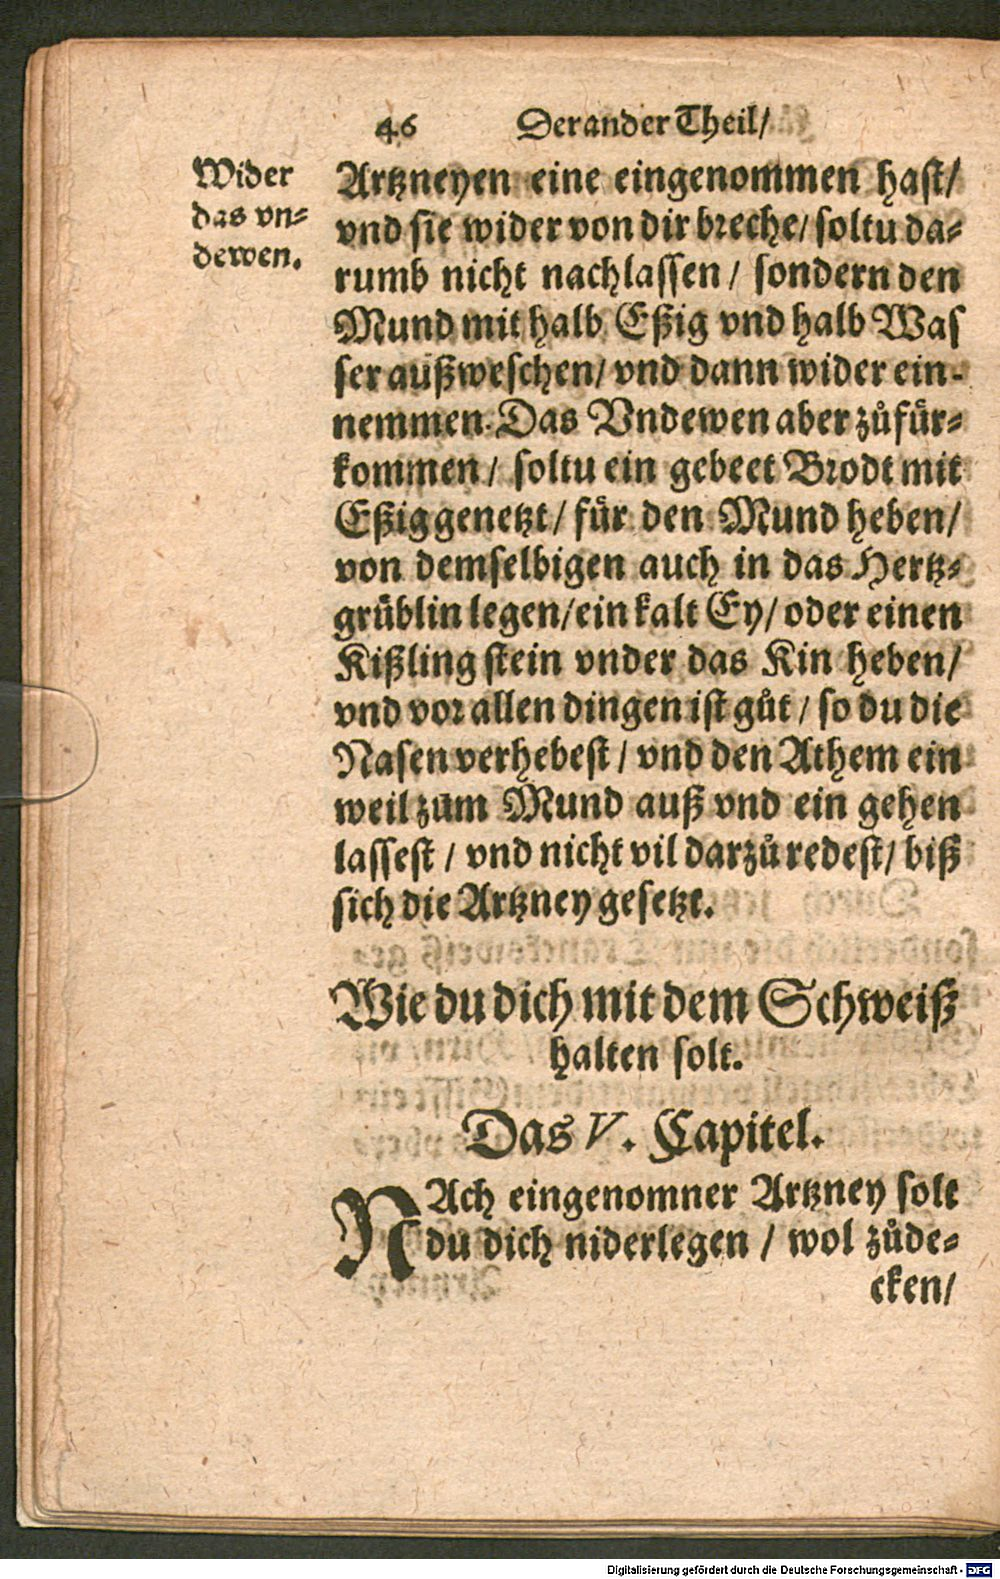 46 Der ander Theil/
Wider
das vn⸗
dewen.
Artzneyen eine eingenommen hast/
vnd sie wider von dir breche/ soltu da⸗
rumb nicht nachlassen / sondern den
Mund mit halb Eßig vnd halb Was
ser außweschen/ vnd dann wider ein⸗
nemmen. Das Vndewen aber zůfür⸗
kommen / soltu ein gebeet Brodt mit
Eßig genetzt / für den Mund heben/
von demselbigen auch in das Hertz⸗
grüblin legen/ ein kalt Ey/ oder einen
Kißling stein vnder das Kin heben/
vnd vor allen dingen ist gůt / so du die
Nasen verhebest / vnd den Athem ein
weil zum Mund auß vnd ein gehen
lassest / vnd nicht vil darzů redest/ biß
sich die Artzney gesetzt.
Wie du dich mit dem Schweiß
halten solt.
Das V. Capitel.
NAch eingenomner Artzney solt
du dich niderlegen / wol zůde⸗
cken/
Digitalisierung gefördert durch die Deutsche Forschungsgemeinschaft - DFG